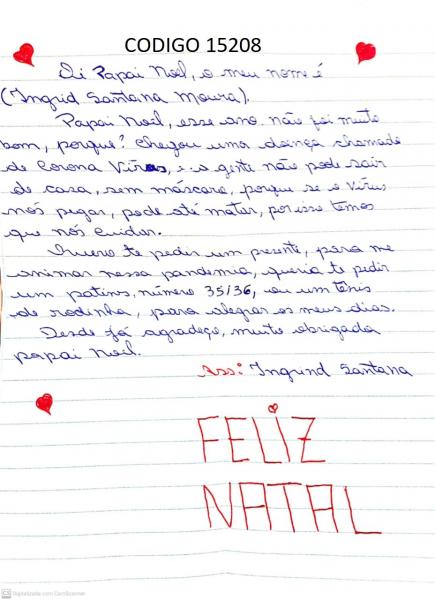 CODIGO 15208
Oi Papai Noel, o meu nome é
(Ingrid Santana Moura).
Papai Noel, esse ano não foi muito
bom, porque? Chegou uma doença chamada
de Corona Vírus, e a gente não pode sair
de casa, sem máscara, porque se o vírus
nós pegar, pode até matar, por isso temos
que nós cuidar.
Quero te pedir um presente, para me
animar nessa pandemia, queria te pedir
um patins, número 35/36, ou um tênis
de rodinha, para alegrar os meus dias.
Desde já agradeço, muito obrigada
papai Noel.
Ass: Ingrind Santana
FELIZ
NATAL
CS Digitalizado com CamScanner